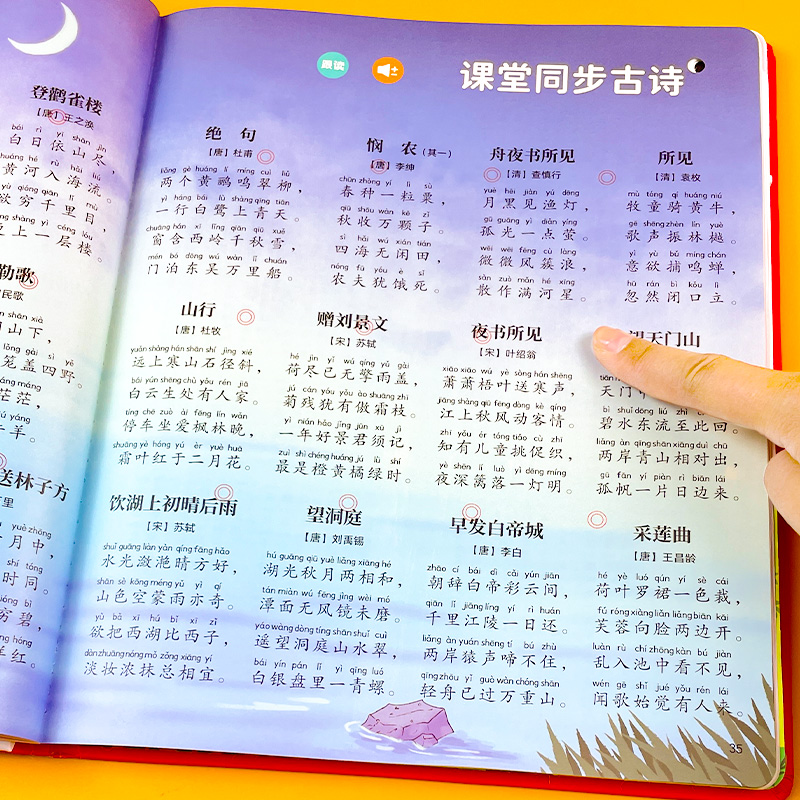 跟读
课堂同步古诗
登鹳雀楼
【唐】王之涣
bái rì yī shān jìn
白日依山尽，
huáng hé rù hǎi liú
黄河入海流。
yù qióng qiān lǐ mù
欲穷千里目，
gèng shàng yì céng lóu
更上一层楼。
勒歌
民歌
shān xià
山下，
lóng gài sì yě
笼盖四野。
máng máng
茫茫，
niú yáng
牛羊。
送林子方
万里
yuè zhōng
月中，
时同。
qióng bì
穷碧，
yàng hóng
样红。
绝句
【唐】杜甫
liǎng gè huáng lí míng cuì liǔ
两个黄鹂鸣翠柳，
yì háng bái lù shàng qīng tiān
一行白鹭上青天。
chuāng hán xī lǐng qiān qiū xuě
窗含西岭千秋雪，
mén bó dōng wú wàn lǐ chuán
门泊东吴万里船。
悯农（其一）
【唐】李绅
chūn zhòng yí lì sù
春种一粒粟，
qiū shōu wàn kē zǐ
秋收万颗子。
sì hǎi wú xián tián
四海无闲田，
nóng fū yóu è sǐ
农夫犹饿死。
舟夜书所见
【清】查慎行
yuè hēi jiàn yú dēng
月黑见渔灯，
gū guāng yì diǎn yíng
孤光一点萤。
wēi wēi fēng cù làng
微微风簇浪，
sàn zuò mǎn hé xīng
散作满河星。
所见
【清】袁枚
mù tóng qí huáng niú
牧童骑黄牛，
gē shēng zhèn lín yuè
歌声振林樾。
yì yù bǔ míng chán
意欲捕鸣蝉，
hū rán bì kǒu lì
忽然闭口立。
山行
【唐】杜牧
yuǎn shàng hán shān shí jìng xié
远上寒山石径斜，
bái yún shēng chù yǒu rén jiā
白云生处有人家。
tíng chē zuò ài fēng lín wǎn
停车坐爱枫林晚，
shuāng yè hóng yú èr yuè huā
霜叶红于二月花。
赠刘景文
【宋】苏轼
hé jìn yǐ wú qíng yǔ gài
荷尽已无擎雨盖，
jú cán yóu yǒu ào shuāng zhī
菊残犹有傲霜枝。
yì nián hǎo jǐng jūn xū jì
一年好景君须记，
zuì shì chéng huáng jú lǜ shí
最是橙黄橘绿时。
夜书所见
【宋】叶绍翁
xiāo xiāo wú yè sòng hán shēng
萧萧梧叶送寒声，
jiāng shàng qiū fēng dòng kè qíng
江上秋风动客情。
zhī yǒu ér tóng tiǎo cù zhī
知有儿童挑促织，
yè shēn lí luò yì dēng míng
夜深篱落一灯明。
望天门山
tiān
天门中
bì shuǐ dōng liú zhì cǐ huí
碧水东流至此回。
liǎng àn qīng shān xiāng duì chū
两岸青山相对出，
gū fān yí piàn rì biān lái
孤帆一片日边来。
饮湖上初晴后雨
【宋】苏轼
shuǐ guāng liàn yàn qíng fāng hǎo
水光潋滟晴方好，
shān sè kōng méng yǔ yì qí
山色空蒙雨亦奇。
yù bǎ xī hú bǐ xī zǐ
欲把西湖比西子，
dàn zhuāng nóng mǒ zǒng xiāng yí
淡妆浓抹总相宜。
望洞庭
【唐】刘禹锡
hú guāng qiū yuè liǎng xiāng hé
湖光秋月两相和，
tán miàn wú fēng jìng wèi mó
潭面无风镜未磨。
yáo wàng dòng tíng shān shuǐ cuì
遥望洞庭山水翠，
bái yín pán lǐ yì qīng luó
白银盘里一青螺。
早发白帝城
【唐】李白
zhāo cí bái dì cǎi yún jiān
朝辞白帝彩云间，
qiān lǐ jiāng líng yí rì huán
千里江陵一日还。
liǎng àn yuán shēng tí bú zhù
两岸猿声啼不住，
qīng zhōu yǐ guò wàn chóng shān
轻舟已过万重山。
采莲曲
【唐】王昌龄
hé yè luó qún yí sè cái
荷叶罗裙一色裁，
fú róng xiàng liǎn liǎng biān kāi
芙蓉向脸两边开。
luàn rù chí zhōng kàn bú jiàn
乱入池中看不见，
wén gē shǐ jué yǒu rén lái
闻歌始觉有人来。
35